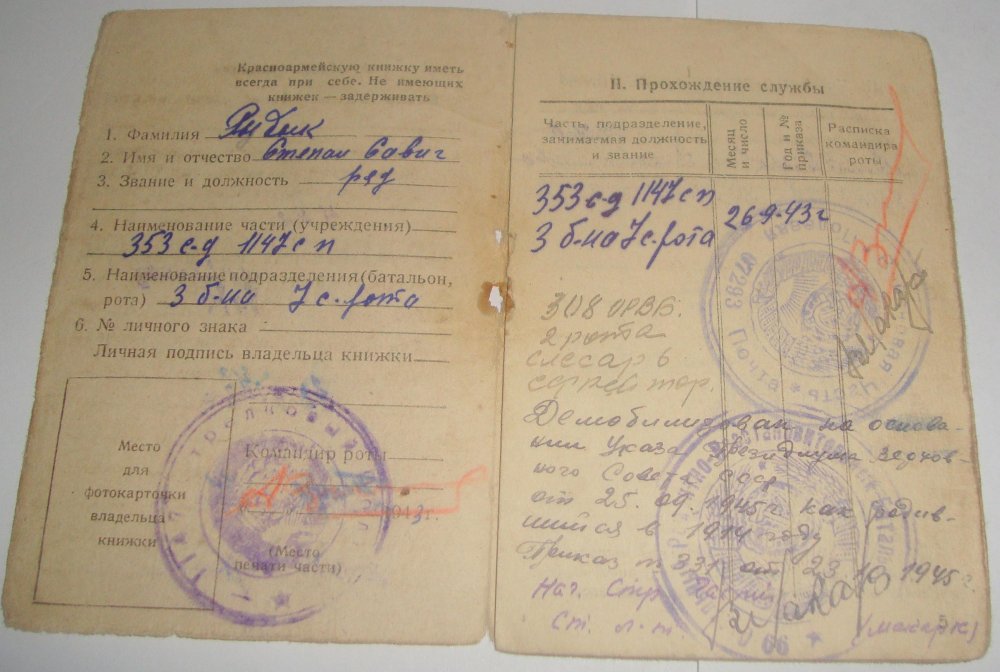 Красноармейскую книжку иметь
всегда при себе. Не имеющих
книжек — задерживать
1. Фамилия
2. Имя и отчество Степан Савич
3. Звание и должность ряд
4. Наименование части (учреждения)
353 с-д 1147 с п
5. Наименование подразделения (батальон,
рота) 3 б-на 7 с. рота
6. № личного знака
Личная подпись владельца книжки
Место
для
фотокарточки
владельца
книжки
Командир роты
1943 г.
(Место
печати части)
II. Прохождение службы
Часть, подразделение,
занимаемая должность
и звание
Месяц
и число
Год и №
приказа
Расписка
командира
роты
353 с-д 1147 с п
3 б-на 7 с. рота
26 9-43 г
308
2 рота
слесарь
Демобилизован на основа-
нии Указа Президиума Верхов-
ного Сове СССР
от 25. 09. 1945 г. как родив-
шийся в 1914 году
Приказ № 331 от 23 10 1945 г.
Нач. Стр. части
Ст. л-т.